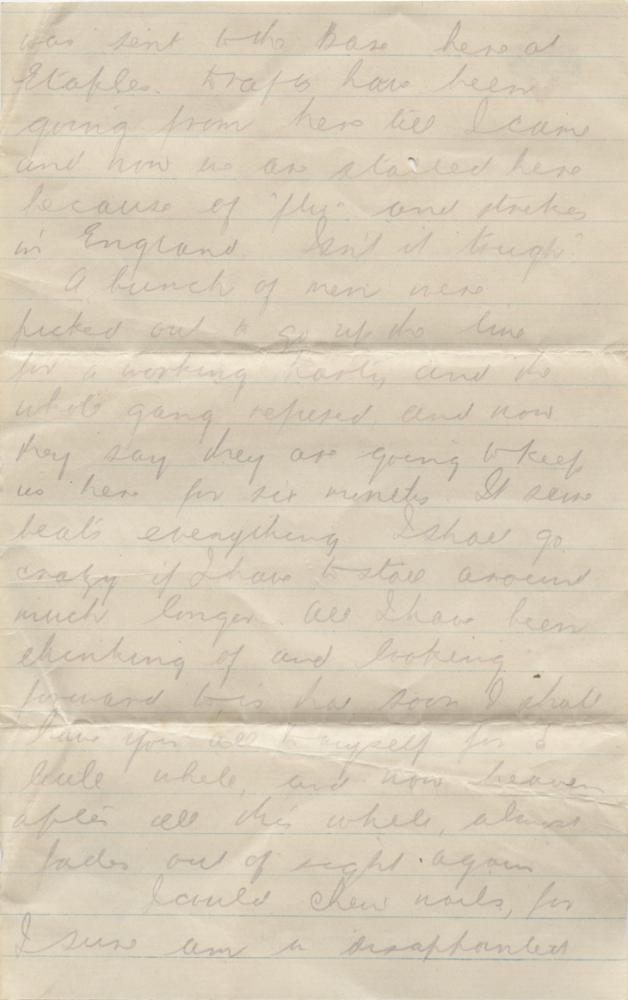 was sent to the Base here at
Etaples. Drafts have been
going from here till I came
and now we are stalled here
because of "flu" and strikes
in England. Isn't it tough?
A bunch of men were
picked out to go up the line
for a working party and the
whole gang refused, and now
they say they are going to keep
us here for six months. It sure
beats everything. I shall go
crazy if I have to stall around
much longer. All I have been
thinking of and looking
forward to is how soon I shall
have you all to myself for a
little while, and now heaven
after all this while, almost
fades out of sight again
I could chew nails, for
I sure am a disappointed